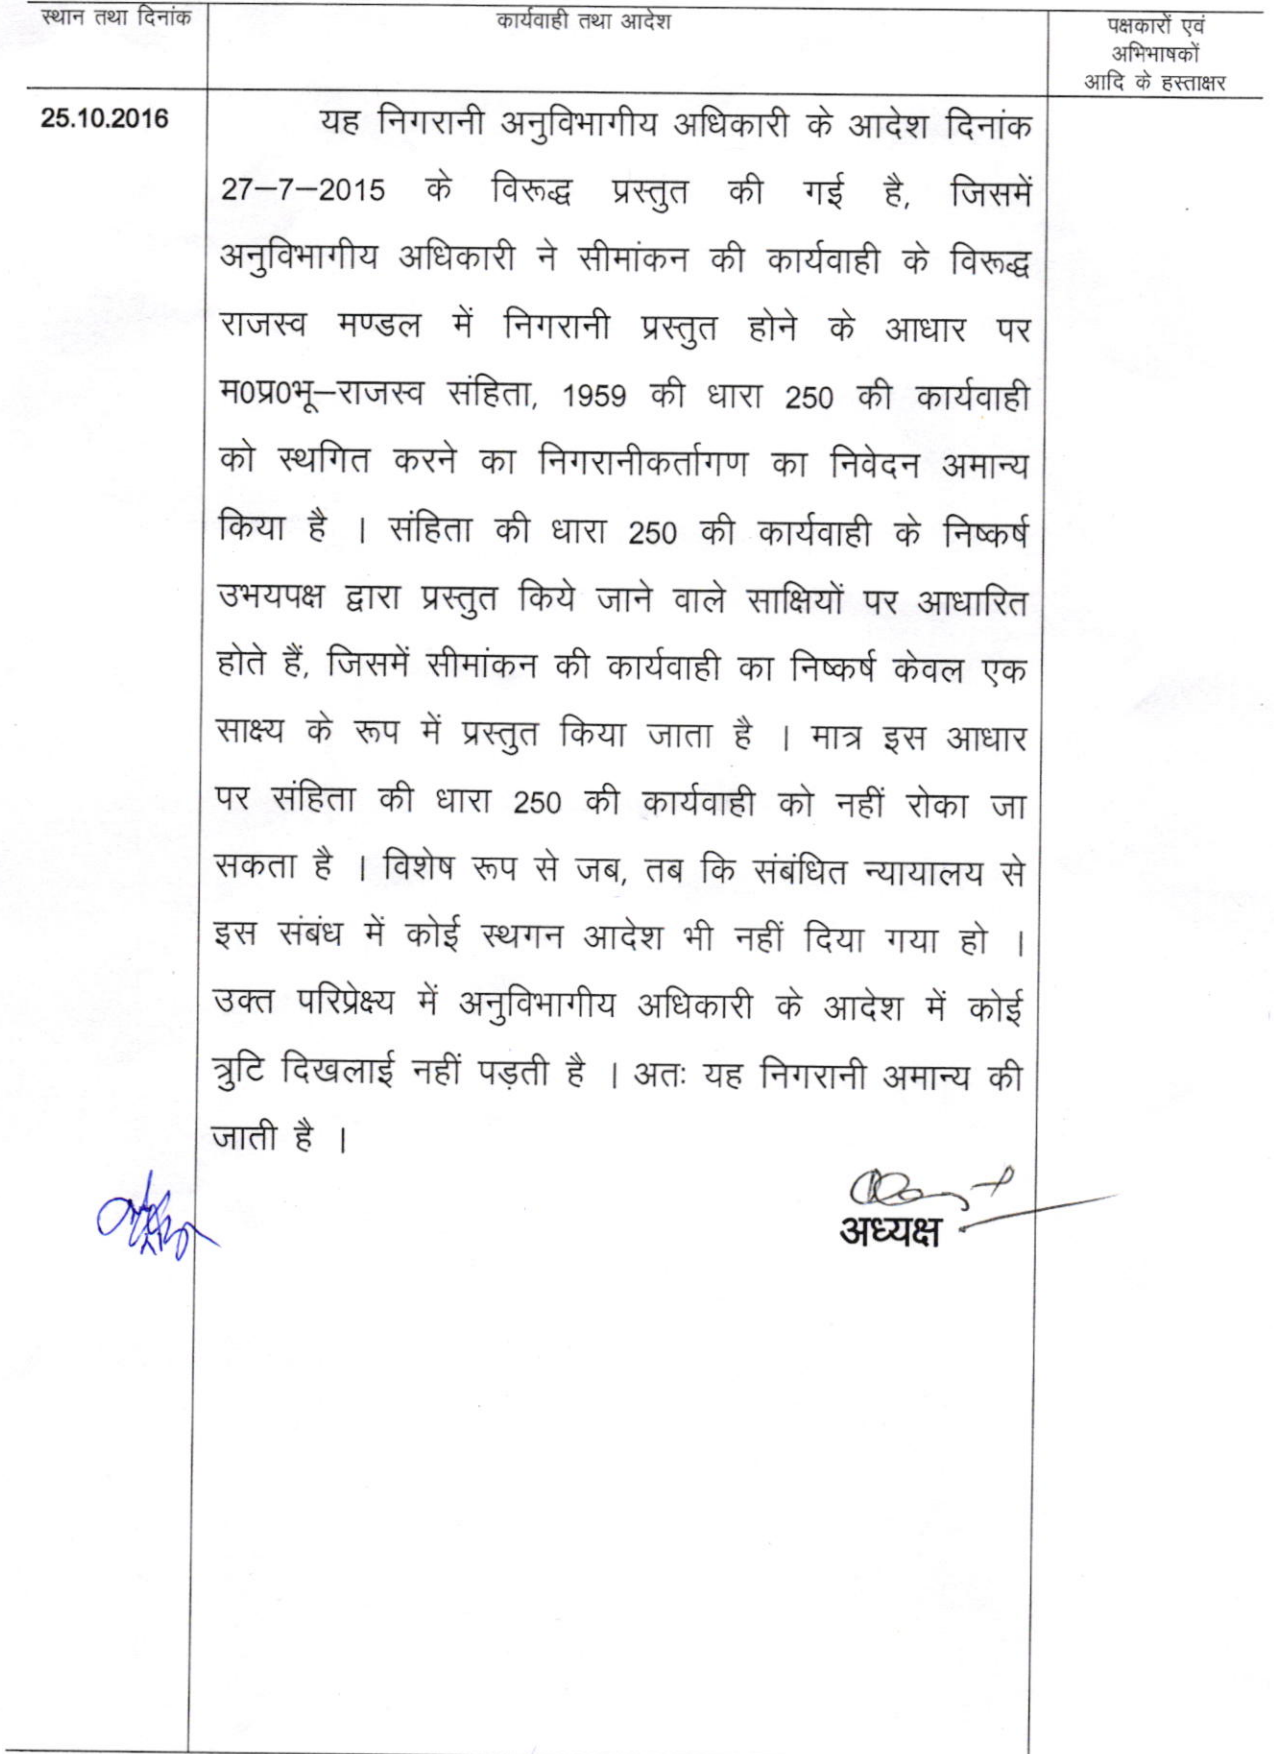 स्थान तथा दिनांक
कार्यवाही तथा आदेश
पक्षकारों एवं
अभिभाषकों
आदि के हस्ताक्षर
25.10.2016
यह निगरानी अनुविभागीय अधिकारी के आदेश दिनांक
27–7–2015 के विरूद्ध प्रस्तुत की गई है, जिसमें
अनुविभागीय अधिकारी ने सीमांकन की कार्यवाही के विरूद्ध
राजस्व मण्डल में निगरानी प्रस्तुत होने के आधार पर
म0प्र0भू–राजस्व संहिता, 1959 की धारा 250 की कार्यवाही
को स्थगित करने का निगरानीकर्तागण का निवेदन अमान्य
किया है । संहिता की धारा 250 की कार्यवाही के निष्कर्ष
उभयपक्ष द्वारा प्रस्तुत किये जाने वाले साक्षियों पर आधारित
होते हैं, जिसमें सीमांकन की कार्यवाही का निष्कर्ष केवल एक
साक्ष्य के रूप में प्रस्तुत किया जाता है । मात्र इस आधार
पर संहिता की धारा 250 की कार्यवाही को नहीं रोका जा
सकता है । विशेष रूप से जब, तब कि संबंधित न्यायालय से
इस संबंध में कोई स्थगन आदेश भी नहीं दिया गया हो ।
उक्त परिप्रेक्ष्य में अनुविभागीय अधिकारी के आदेश में कोई
त्रुटि दिखलाई नहीं पड़ती है । अतः यह निगरानी अमान्य की
जाती है ।
अध्यक्ष